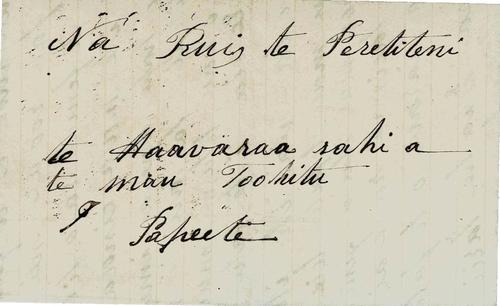 Na Ruis te Peretiteni
te Haavaraa rahi a
te mau Toohitu
Papeete